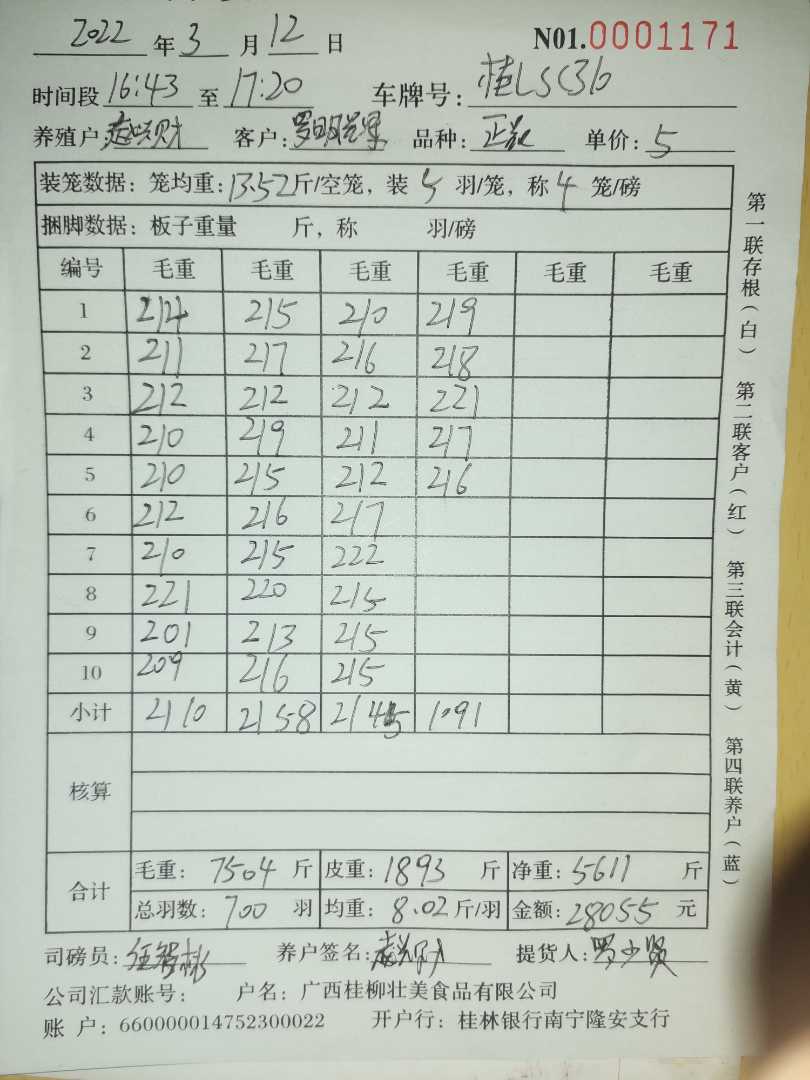 2022 年 3 月 12 日 N01.0001171
时间段 16:43 至 17:20 车牌号: 桂LSC36
养殖户: 客户: 罗明 品种: 正 单价: 5
装笼数据: 笼均重: 13.52 斤/空笼, 装 5 羽/笼, 称 4 笼/磅
捆脚数据: 板子重量 斤, 称 羽/磅
编号 毛重 毛重 毛重 毛重 毛重 毛重
1 214 215 210 219
2 211 217 216 218
3 212 212 212 221
4 210 219 211 217
5 210 215 212 216
6 212 216 217
7 210 215 222
8 221 220 215
9 201 213 215
10 209 216 215
小计 2110 2158 2145 1091
核算
合计 毛重: 7504 斤 皮重: 1893 斤 净重: 5611 斤
总羽数: 700 羽 均重: 8.02 斤/羽 金额: 28055 元
司磅员: 养户签名: 提货人: 罗少贤
公司汇款账号: 户名: 广西桂柳壮美食品有限公司
账 户: 660000014752300022 开户行: 桂林银行南宁隆安支行
第一联存根(白) 第二联客户(红) 第三联会计(黄) 第四联养户(蓝)